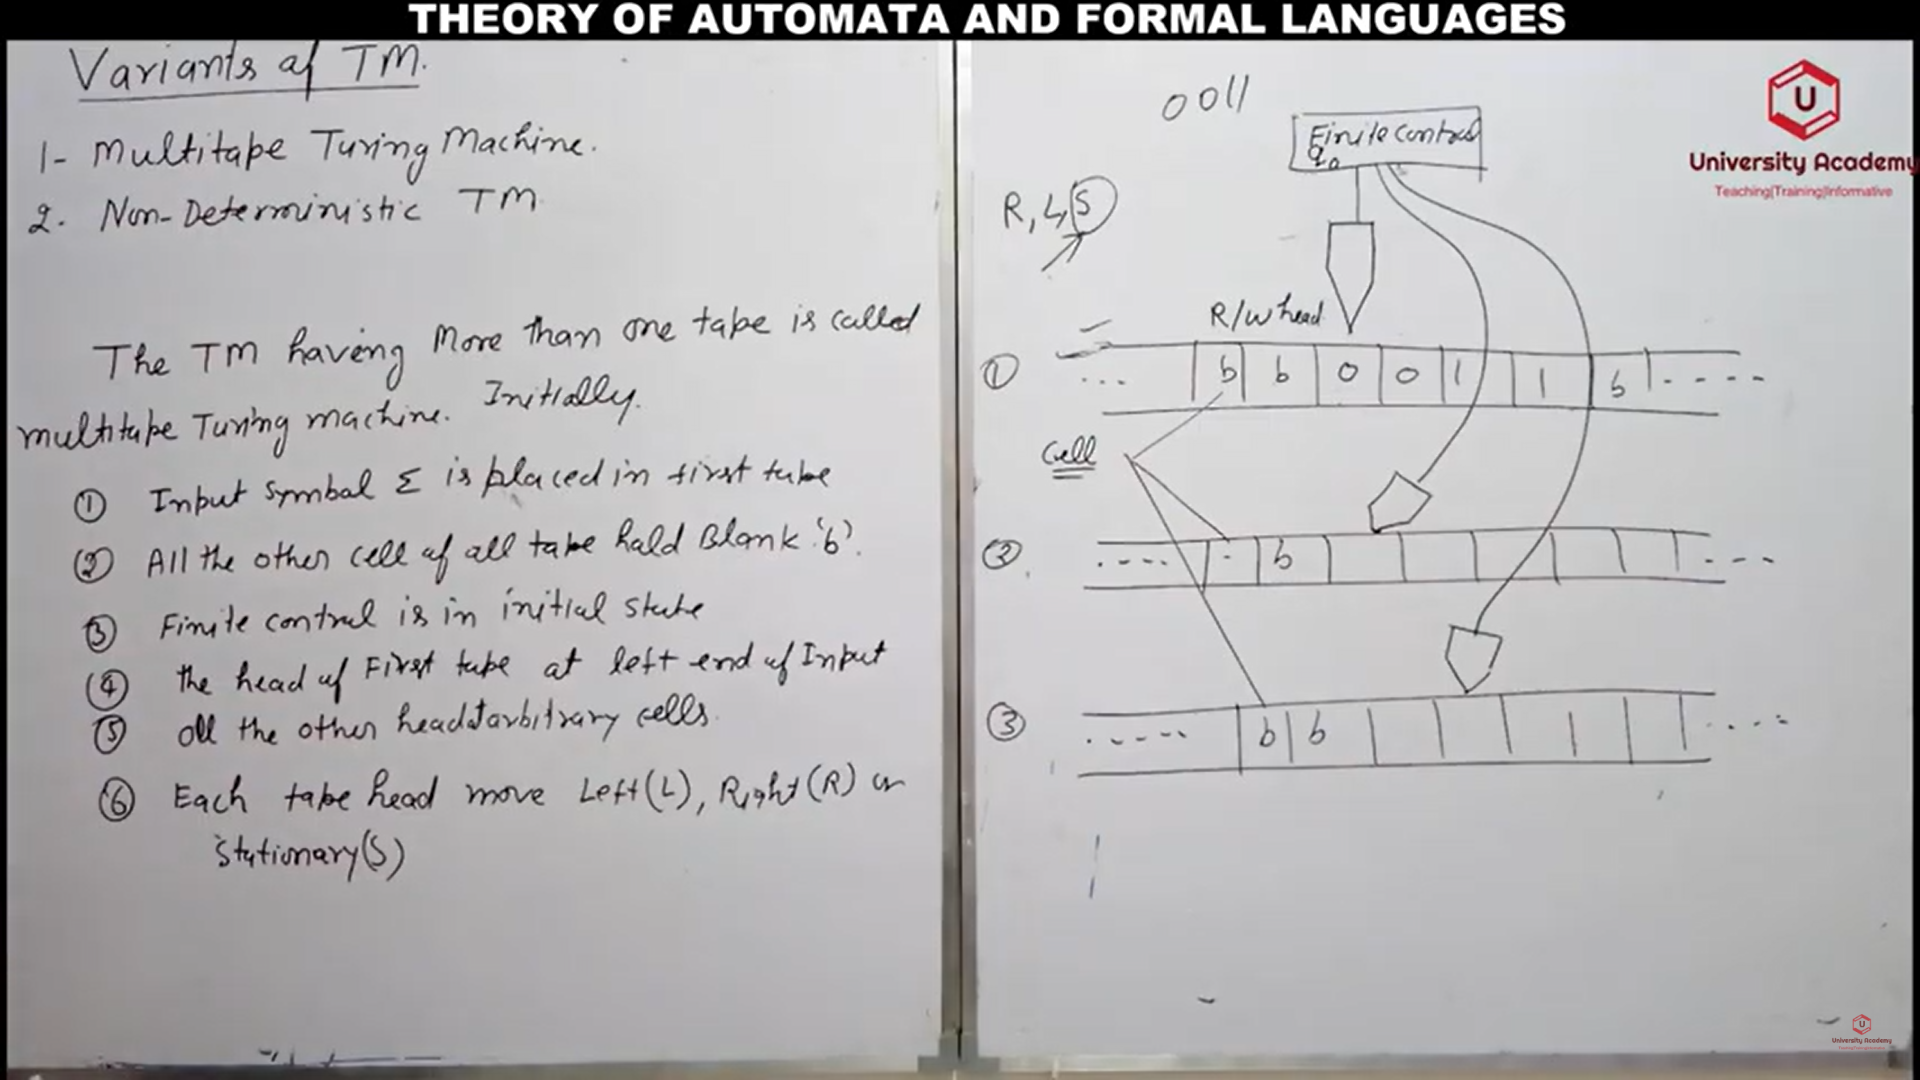 THEORY OF AUTOMATA AND FORMAL LANGUAGES
Variants of TM.
1- Multitape Turing Machine.
2. Non-Deterministic TM
The TM haveng More than one tape is called
multitape Turing machine. Initially.
① Input symbol Σ is placed in first tape
② All the other cell of all tape hald Blank 'b'.
③ Finite control is in initial state
④ the head of First tape at left end of Input
⑤ all the other head at arbitrary cells.
⑥ Each tape head move Left(L), Right(R) or
Stationary(S)
0011
Finite control
q0
R, L, S
R/W head
① ... b b 0 0 1 1 b ----
Cell
② ---- - b ---
③ ----- b b ----
U
University Academy
Teaching|Training|Informative
U
University Academy